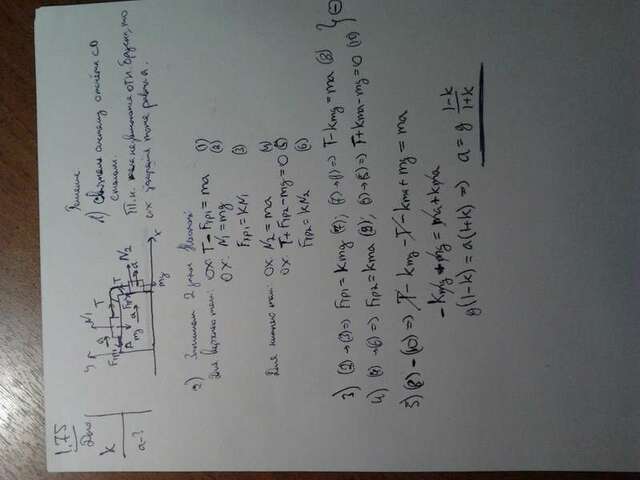 1.75
Дано
k
a-?
y
N1
T
T
Fтр1
mg
a
N2
Fтр2
a
mg
x
Решение
1) Свяжем систему отсчёта со
столом.
Т.к. тела не движутся отн. бруска, то
их ускорения тоже равны a.
2) Запишем 2 закон Ньютона
Для верхнего тела: ox: T - Fтр1 = ma (1)
oy: N1 = mg (2)
Fтр1 = kN1 (3)
Для нижнего тела: ox: N2 = ma (4)
oy: T + Fтр2 - mg = 0 (5)
Fтр2 = kN2 (6)
3) (2) → (3) => Fтр1 = kmg (7); (7) → (1) => T - kmg = ma (8)
4) (4) → (6) => Fтр2 = kma (9); (9) → (5) => T + kma - mg = 0 (10)
5) (8) - (10) => T - kmg - T - kma + mg = ma
-kmg + mg = ma + kma
g(1-k) = a(1+k) => a = g (1-k)/(1+k)